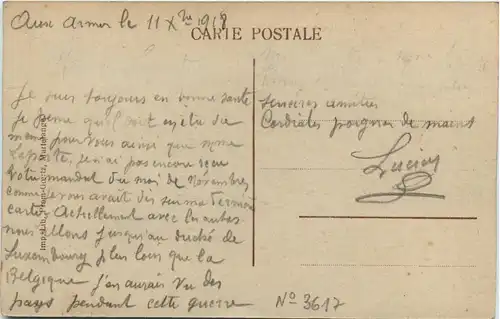 Aux Armees le 11 Xbre 1918
CARTE POSTALE
Je suis toujours en bonne santé
je pense qu'il soit ainsi de
meme pour vous ainsi que Mme
Laporte, je n'ai pas encore reçu
votre mandat du moi de Novembre
comme je vous avait dis sur ma derniere
carte. Actuellement avec les autres
nous allons jusqu'au duché de
Luxembourg plus loin que la
Belgique j'en aurais vu des
pays pendant cette guerre
sinceres amities
Cordiales poignee de mains
Lucien
No 3617